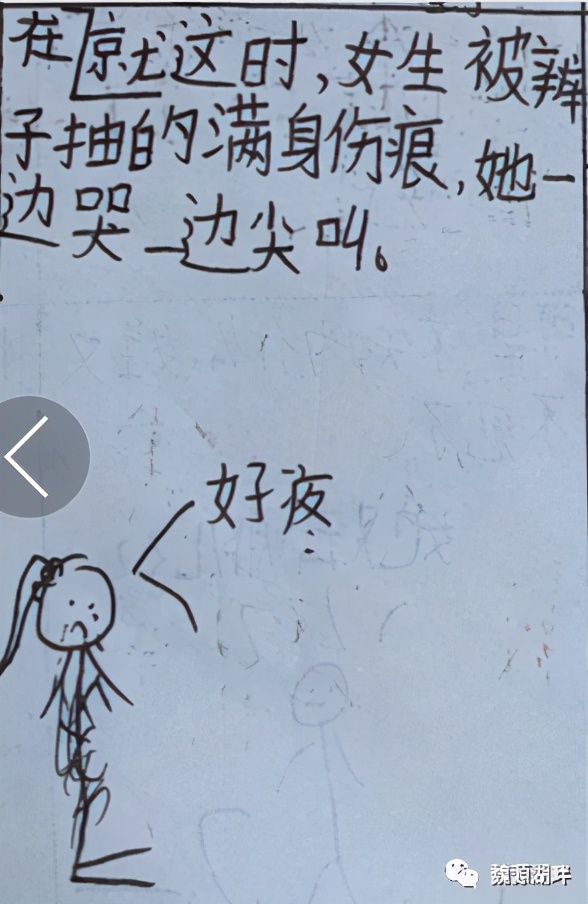 在就这时,女生被辫
子抽的满身伤痕,她一
边哭一边尖叫。
好疼
魏頭湖畔